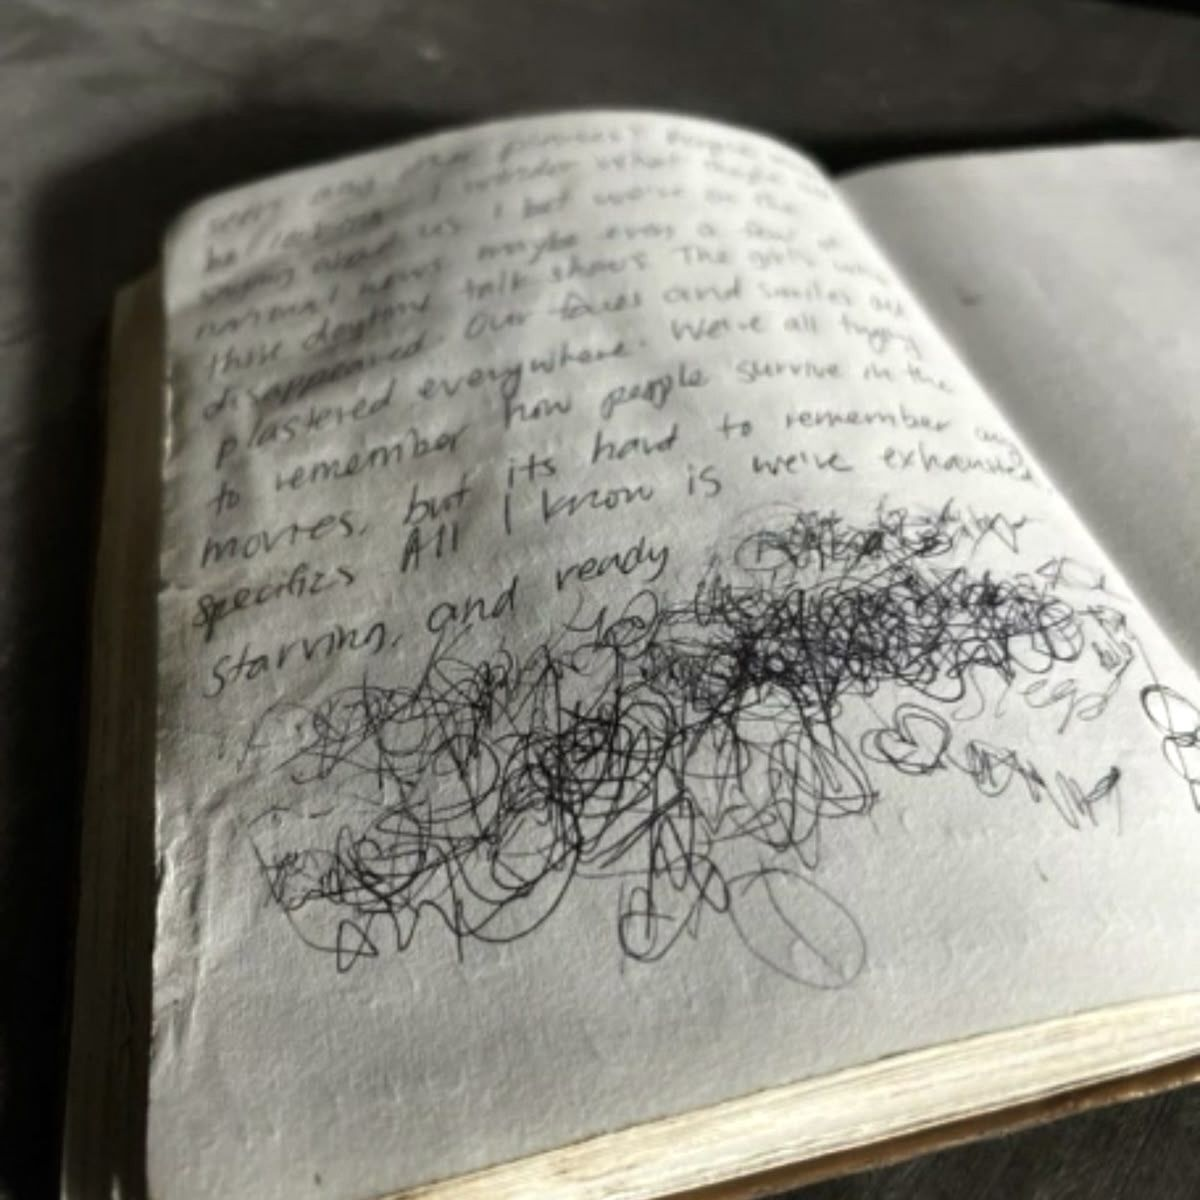 I wonder what
us. I bet we're on the
normal news maybe even a few of
those daytime talk shows. The girls who
disappeared. Our faces and smiles are
plastered everywhere. We're all trying
to remember how people survive in the
movies, but its hard to remember any
specifics All I know is we've exhausted,
starving, and ready